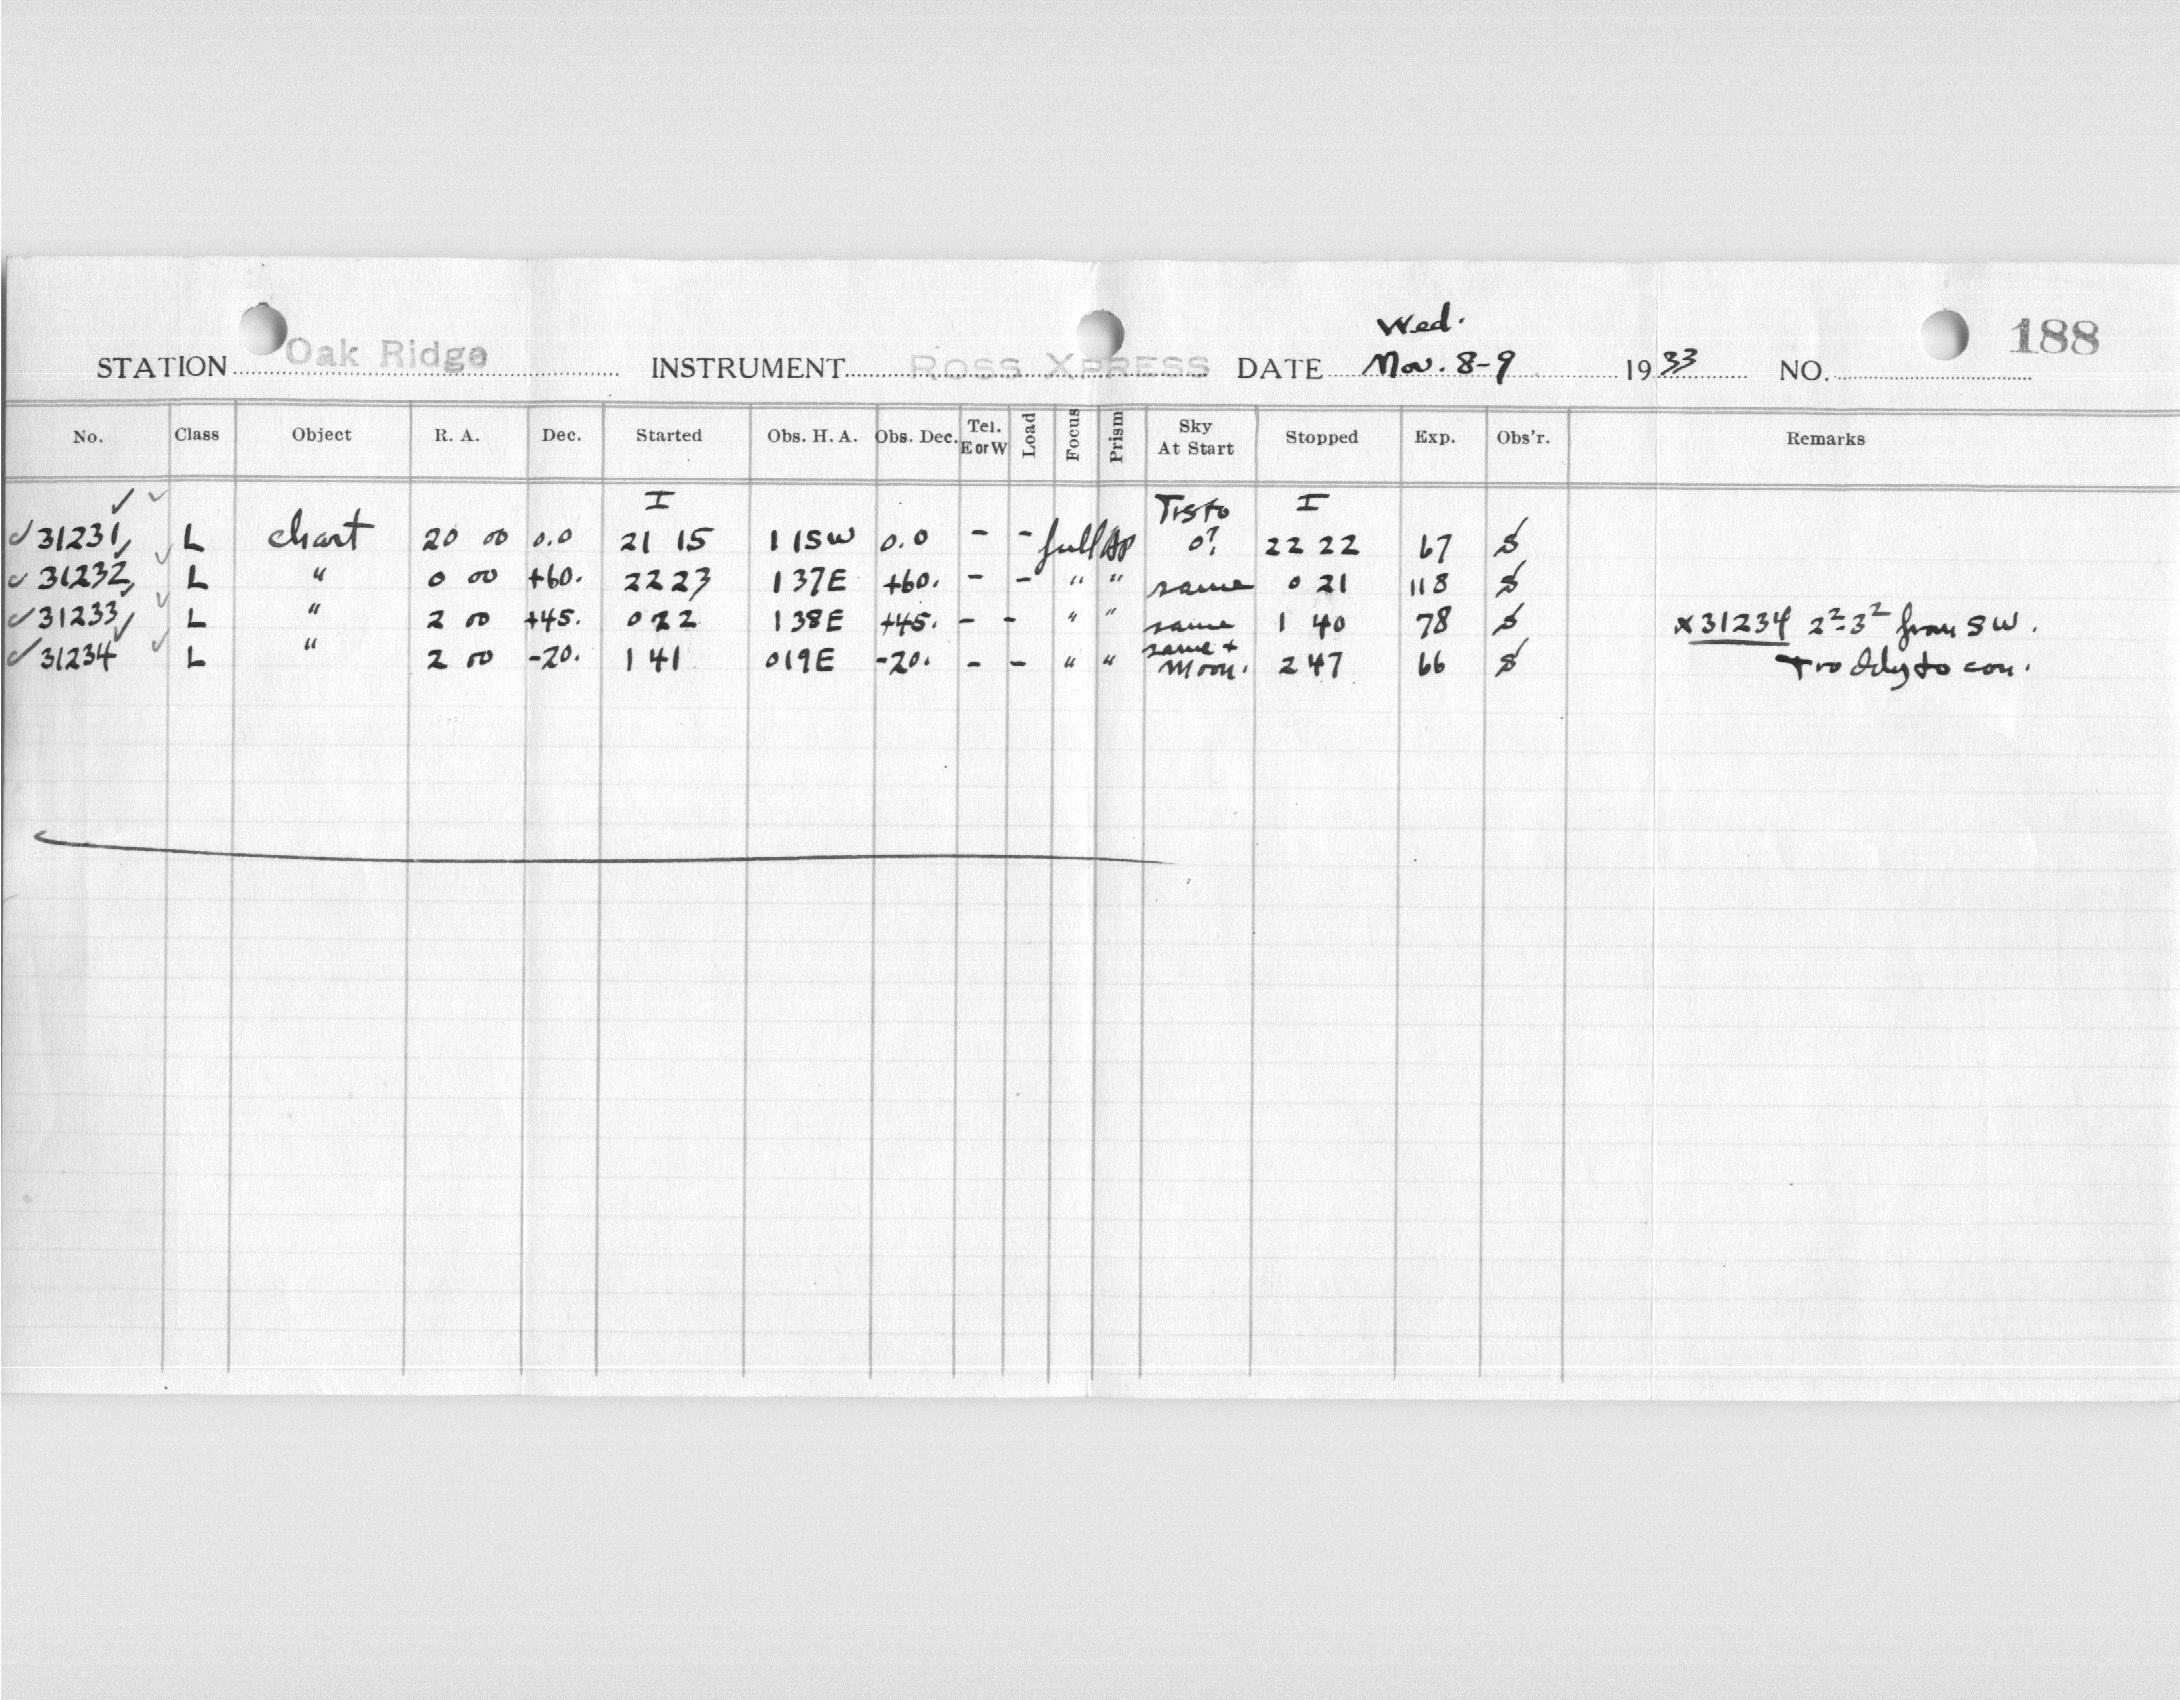 Wed.
STATION Oak Ridge INSTRUMENT ROSS XPRESS DATE Nov. 8-9 1933 NO. 188
No. Class Object R. A. Dec. Started Obs. H. A. Obs. Dec. Tel. E or W Load Focus Prism Sky At Start Stopped Exp. Obs'r. Remarks
I I
31231 L chart 20 00 0.0 21 15 1 15W 0.0 - - full 0? 22 22 67
31232 L " 0 00 +60. 22 23 1 37E +60. - - " " same 0 21 118
31233 L " 2 00 +45. 0 22 1 38E +45. - - " " same 1 40 78 x31234 2²-3² from SW.
31234 L " 2 00 -20. 1 41 0 19E -20. - - " " same + Moon. 2 47 66 to con.